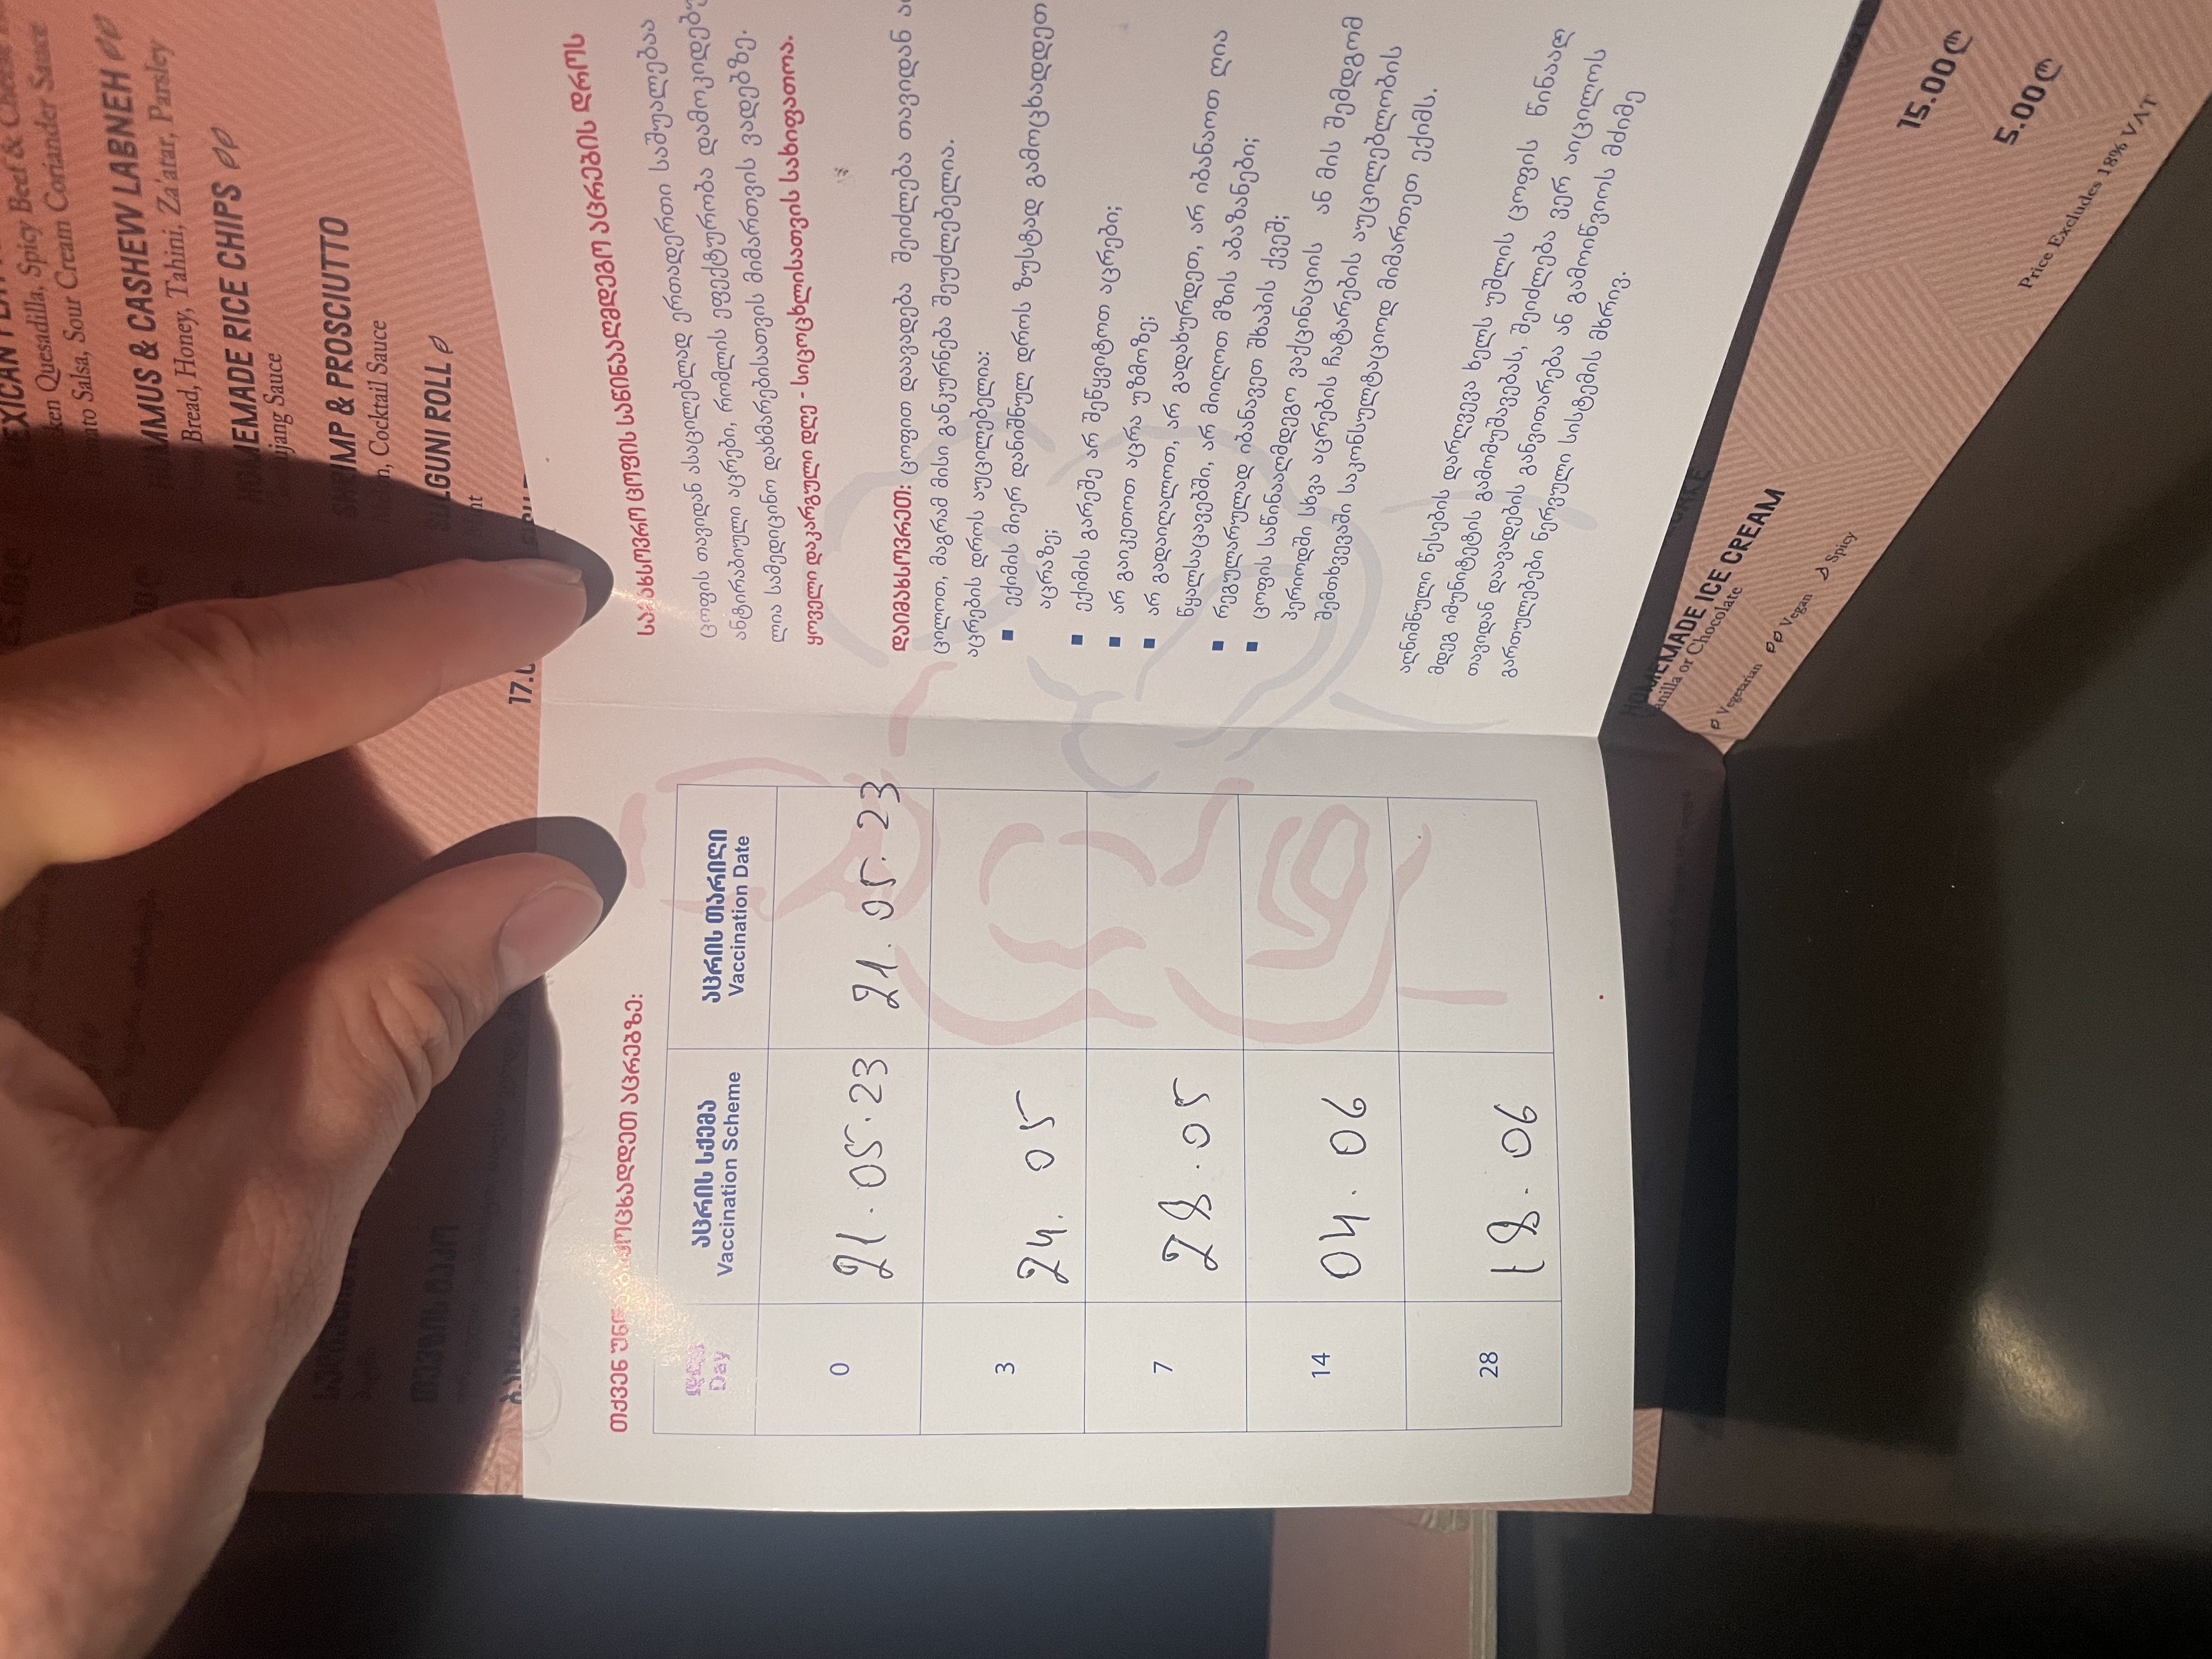 MEXICAN
Quesadilla, Spicy Beef & Cheese
Salsa, Sour Cream Coriander Sauce
HUMMUS & CASHEW LABNEH
Bread, Honey, Tahini, Za'atar, Parsley
HOMEMADE RICE CHIPS
Sauce
SHRIMP & PROSCIUTTO
Cocktail Sauce
SULGUNI ROLL
თევზის ტაკო
თქვენ უნდა გამოცხადდეთ აცრებზე:
დღე
Day
აცრის სქემა
Vaccination Scheme
აცრის თარიღი
Vaccination Date
0
21.05.23
21.05.23
3
24.05
7
28.05
14
04.06
28
18.06
სამახსოვრო ცოფის საწინააღმდეგო აცრების დროს
ცოფის თავიდან ასაცილებლად ერთადერთი საშუალებაა
ანტირაბიული აცრები, რომლის ეფექტურობა დამოკიდებუ
ლია სამედიცინო დახმარებისათვის მიმართვის ვადებზე.
ყოველი დაკარგული დღე - სიცოცხლისათვის სახიფათოა.
დაიმახსოვრეთ: ცოფით დაავადება შეიძლება თავიდან ა
ცილოთ, მაგრამ მისი განკურნება შეუძლებელია.
აცრების დროს აუცილებელია:
ექიმის მიერ დანიშნულ დროს ზუსტად გამოცხადდეთ
აცრაზე;
ექიმის გარეშე არ შეწყვიტოთ აცრები;
არ გაიკეთოთ აცრა უზმოზე;
არ გადაიღალოთ, არ გადახურდეთ, არ იბანაოთ ღია
წყალსაცავებში, არ მიიღოთ მზის აბაზანები;
რეგულარულად იბანავეთ შხაპის ქვეშ;
ცოფის საწინააღმდეგო ვაქცინაციის ან მის შემდგომ
პერიოდში სხვა აცრების ჩატარების აუცილებლობის
შემთხვევაში საკონსულტაციოდ მიმართეთ ექიმს.
აღნიშნული წესების დარღვევა ხელს უშლის ცოფის წინააღ
მდეგ იმუნიტეტის გამომუშავებას, შეიძლება ვერ აიცილოს
თავიდან დაავადების განვითარება ან გამოიწვიოს მძიმე
გართულებები ნერვული სისტემის მხრივ.
HOMEMADE ICE CREAM
Vanilla or Chocolate
Vegetarian Vegan Spicy
15.00₾
5.00₾
Price Excludes 18% VAT